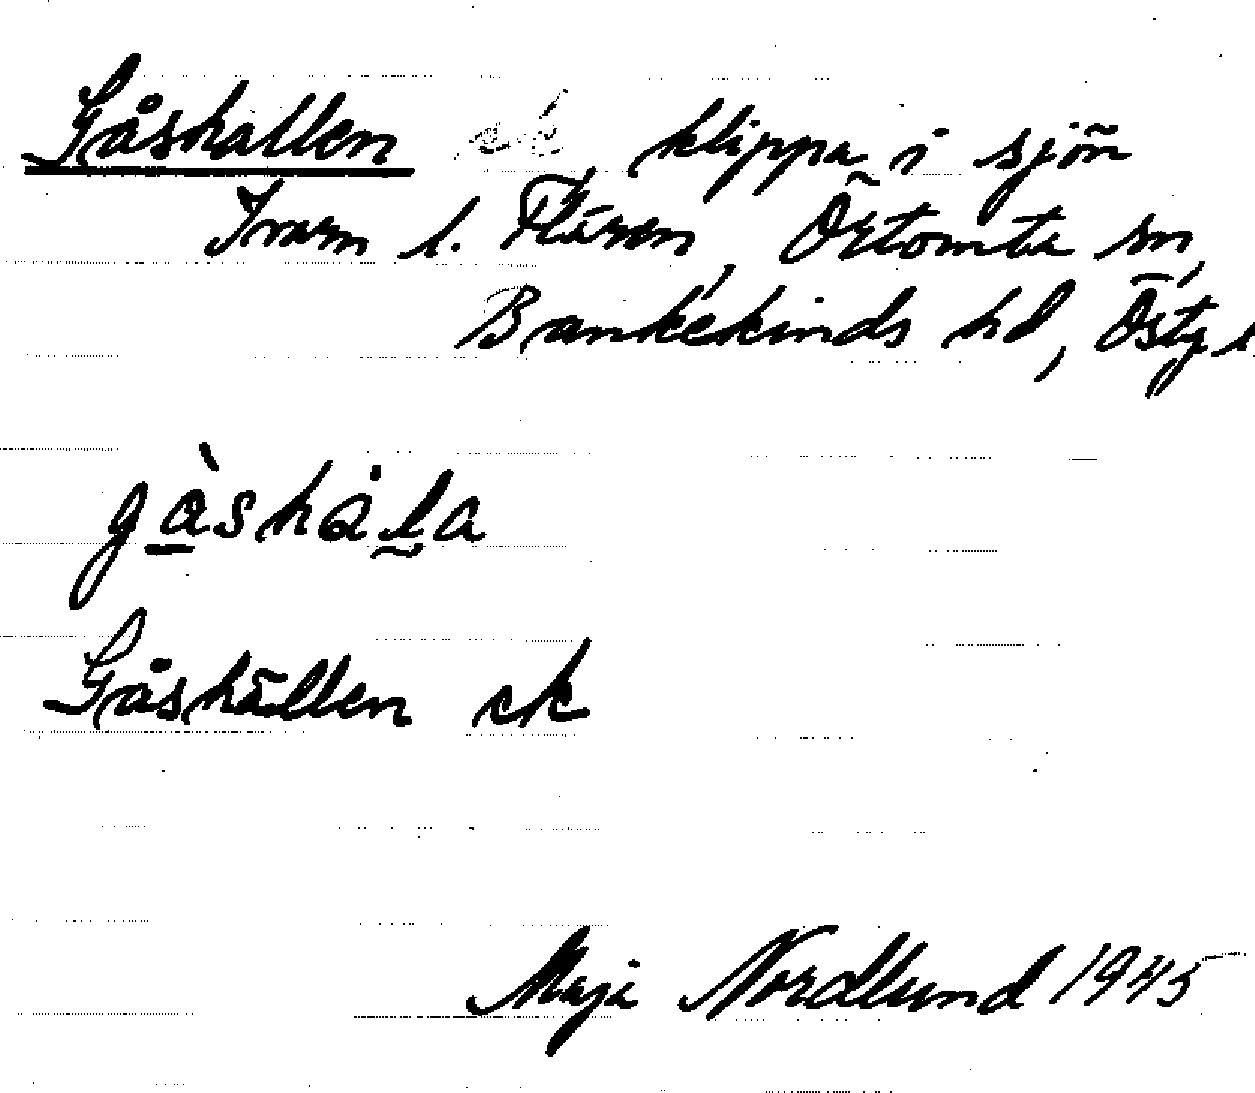 Gåshallen klippa i sjön
l. Flären, Örtomta sn,
Bankekinds hd, Östg l.
gåshåla
Gåshällen ek
Maja Nordlund 1945